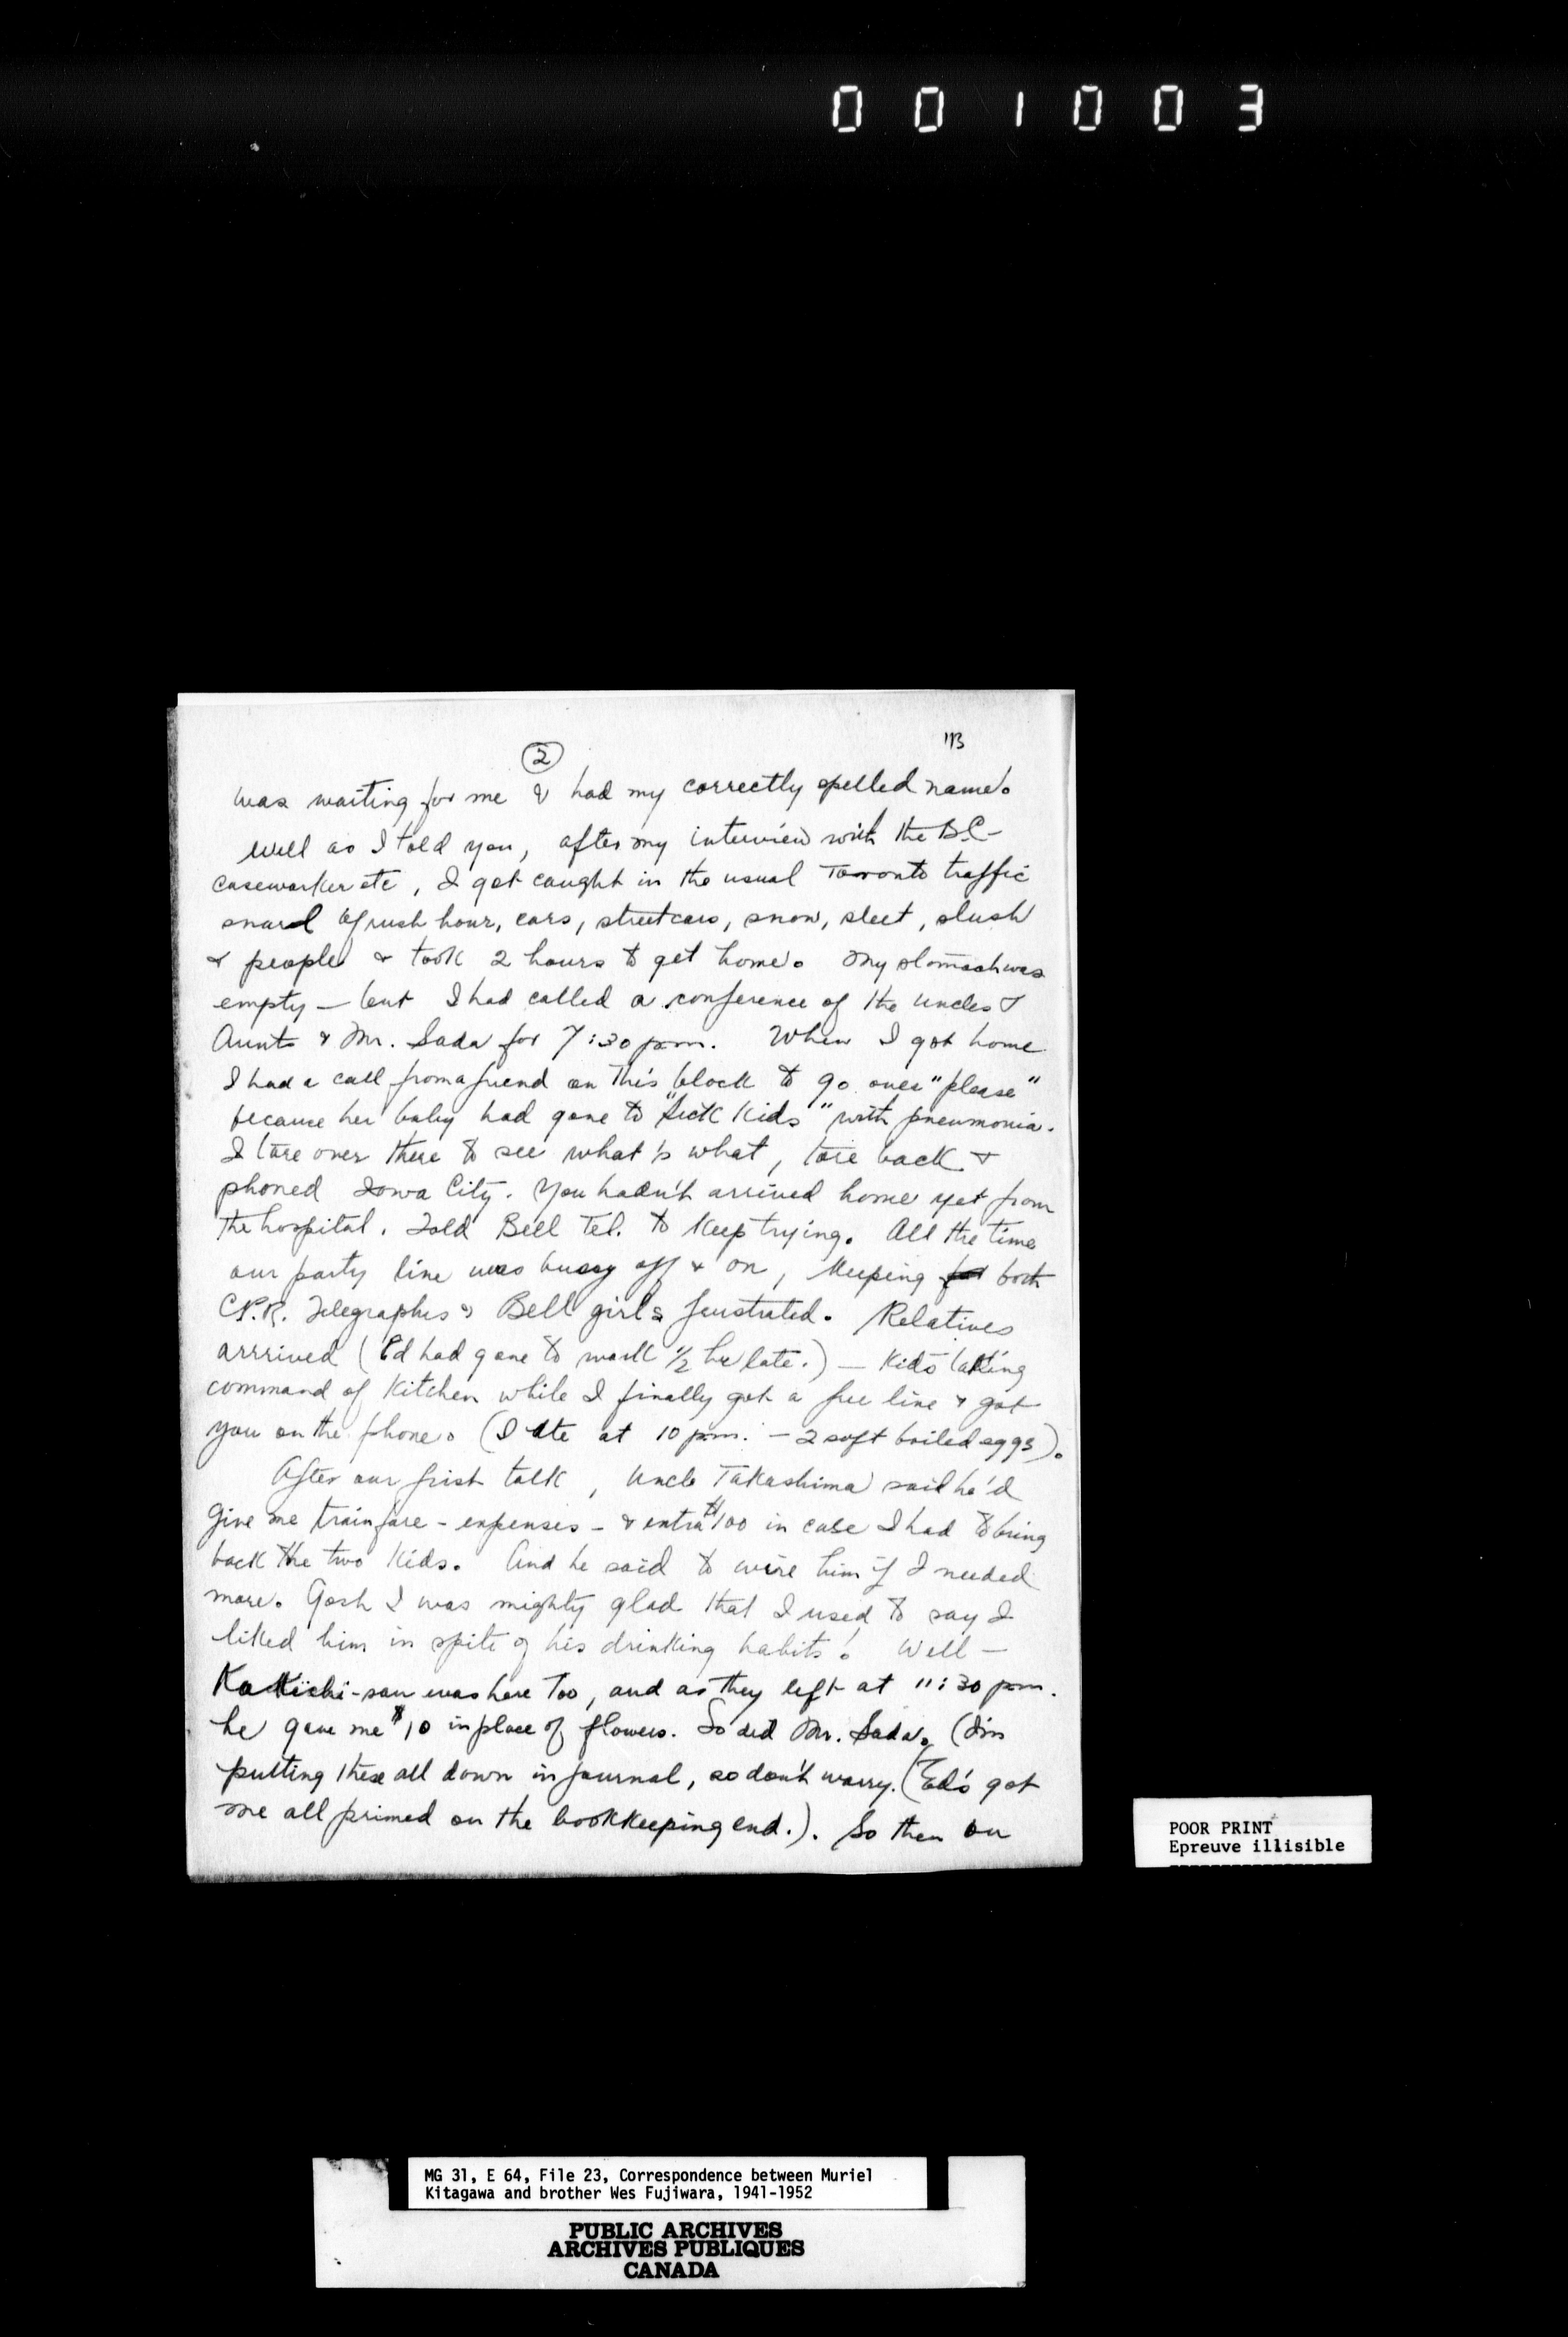 001003
113
2
was waiting for me & had my correctly spelled name.
Well as I told you, after my interview with the B.C.
caseworker etc, I got caught in the usual Toronto traffic
snarl of rush hour, cars, streetcars, snow, sleet, slush
& people & took 2 hours to get home. My stomach was
empty — but I had called a conference of the Uncles &
Aunts & Mr. Sada for 7:30 p.m. When I got home
I had a call from a friend on this block to go over "please"
because her baby had gone to "Sick Kids" with pneumonia.
I tore over there to see what's what, tore back &
phoned Iowa City. You hadn't arrived home yet from
the hospital. Told Bell Tel. to keep trying. All the time
our party line was busy off & on, keeping both
C.P.R. Telegraphs & Bell girls frustrated. Relatives
arrrived (Ed had gone to work 1/2 hr late.) — Kids taking
command of kitchen while I finally got a free line & got
you on the phone. (I ate at 10 p.m. — 2 soft boiled eggs).
After our first talk, Uncle Takashima said he'd
give me trainfare - expenses - & extra $100 in case I had to bring
back the two kids. And he said to wire him if I needed
more. Gosh I was mighty glad that I used to say I
liked him in spite of his drinking habits! Well —
Kakichi-san was here too, and as they left at 11:30 p.m.
he gave me $10 in place of flowers. So did Mr. Sada. (I'm
putting these all down in journal, so don't worry. (Ed's got
me all primed on the bookkeeping end.). So then on
POOR PRINT
Epreuve illisible
MG 31, E 64, File 23, Correspondence between Muriel
Kitagawa and brother Wes Fujiwara, 1941-1952
PUBLIC ARCHIVES
ARCHIVES PUBLIQUES
CANADA